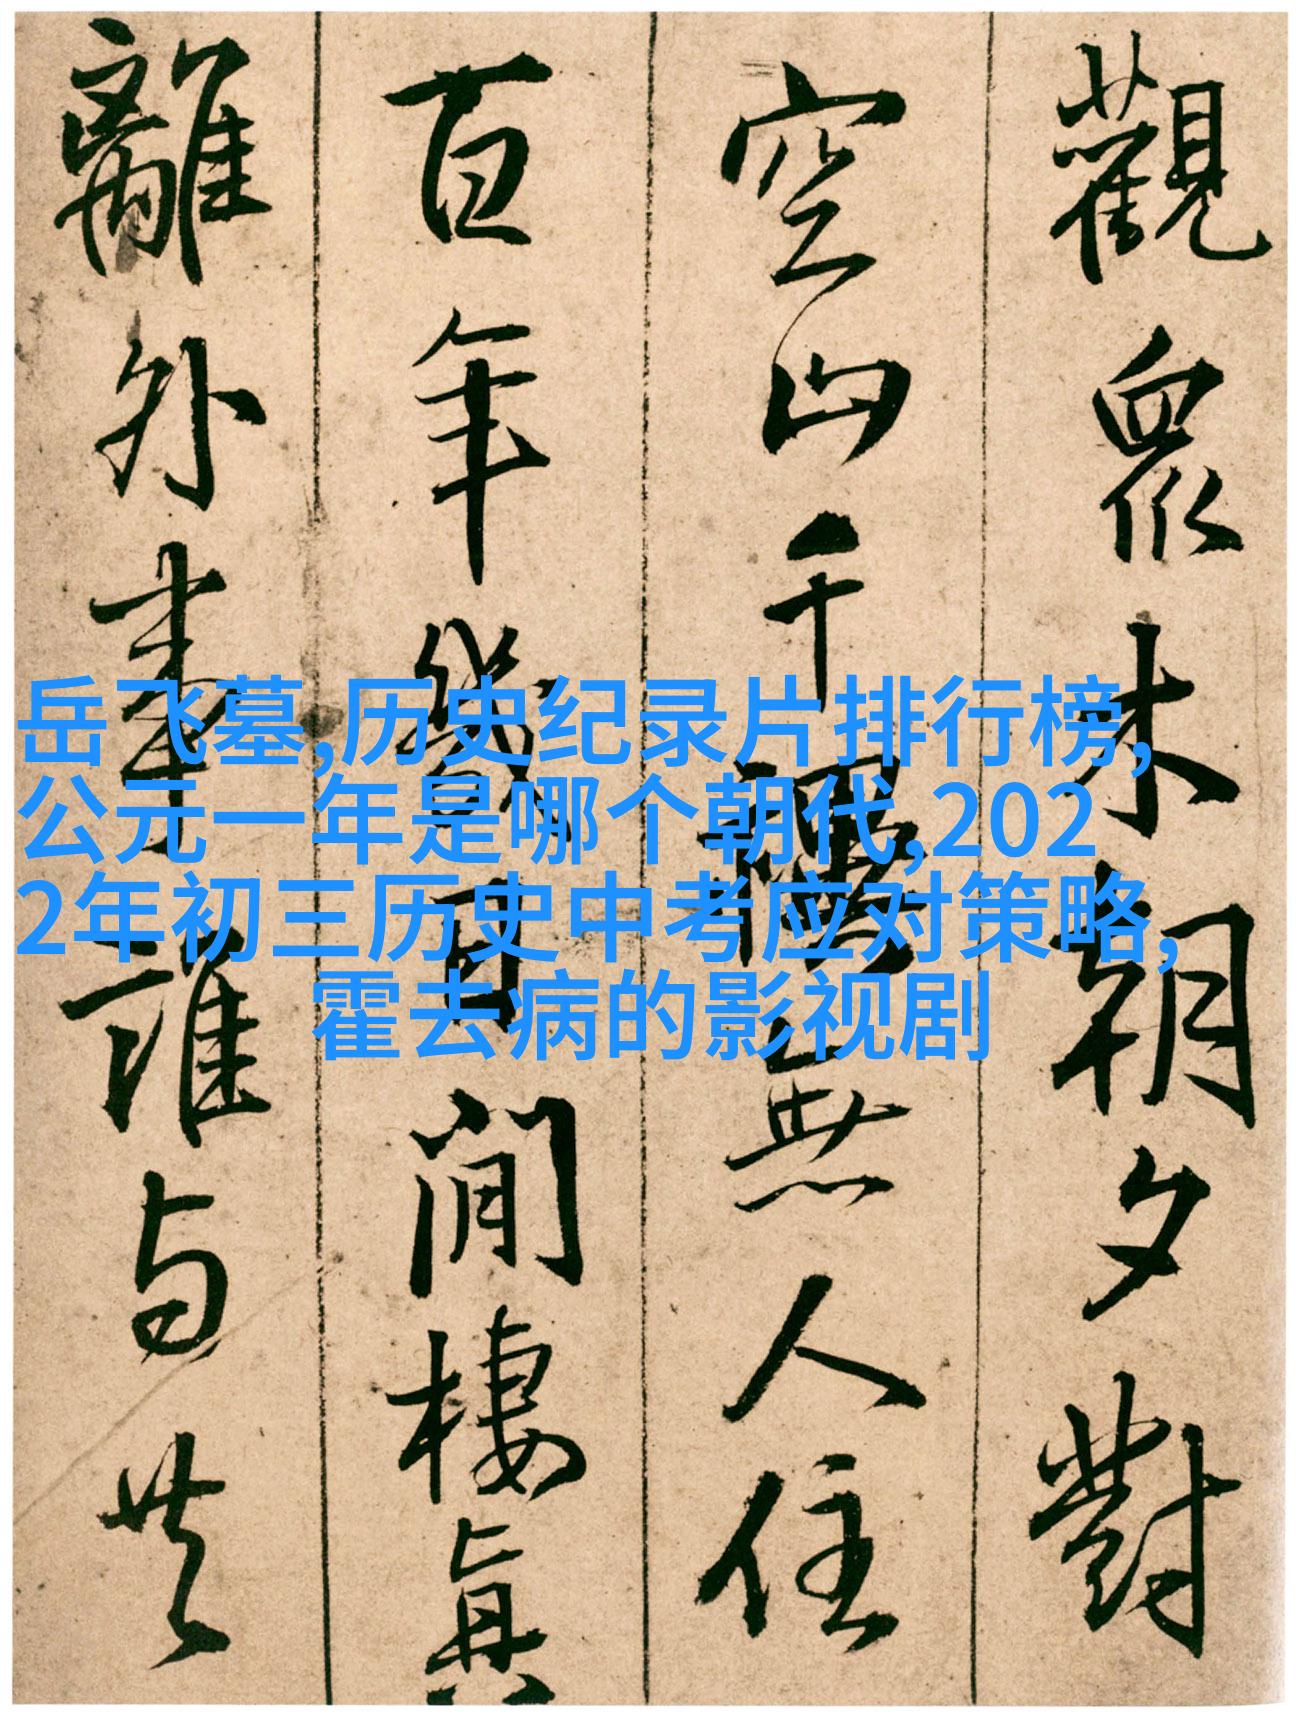 觀衆木朝夕對
空山千無人住
百年幾日閒棲真
離外事誰与共
岳飞墓,历史纪录片排行榜,
公元一年是哪个朝代,202
2年初三历史中考应对策略,
霍去病的影视剧